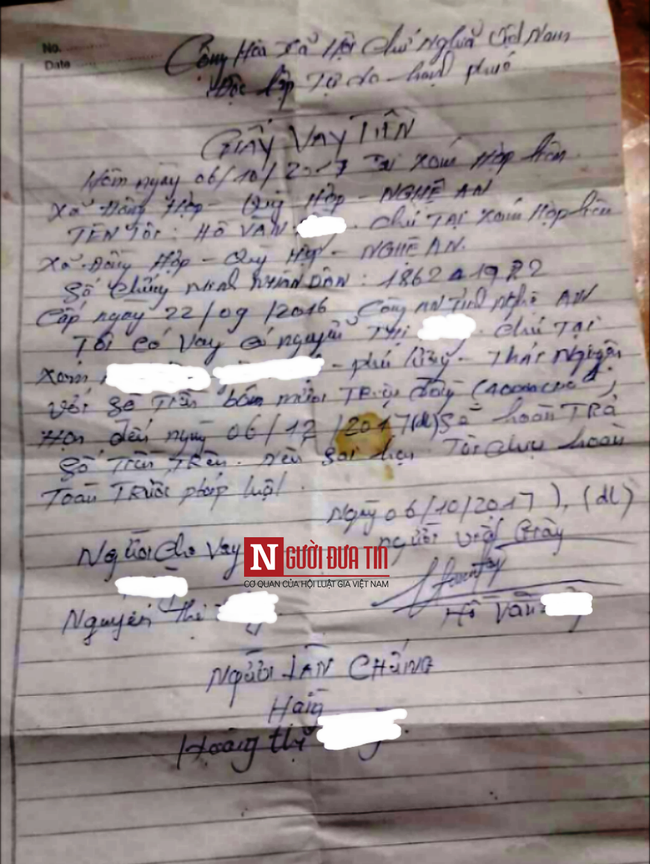 No.
Date
Cộng Hòa Xã Hội Chủ Nghĩa Việt Nam
Độc lập Tự do - hạnh phúc
GIẤY VAY TIỀN
Hôm ngày 06/10/2017 Tại Xóm Hợp tiến
Xã Đồng Hợp - Quỳ Hợp - NGHỆ AN
TÊN TÔI: HỒ VĂN chú TẠI Xóm Hợp tiến
Xã Đồng Hợp - Quỳ Hợp - NGHỆ AN.
Số chứng minh NHÂN DÂN:
Cấp ngày 22/09/2016 Công AN Tỉnh Nghệ AN
Tôi có vay cô nguyễn Thị chú TẠI
xóm - phú lương - Thái Nguyên
Với Số Tiền bốn mươi Triệu đồng
Hẹn đến ngày 06/12/2017 (dl) Sẽ hoàn TRả
Số Tiền Trên. nếu sai hẹn Tôi chịu hoàn
Toàn Trước pháp luật.
Ngày 06/10/2017), (dl)
Người Cho Vay
người viết Giấy
NGƯỜI ĐƯA TIN
CƠ QUAN CỦA HỘI LUẬT GIA VIỆT NAM
Nguyễn Thị
Hồ Văn
NGƯỜI LÀM CHỨNG
Hoàng thị